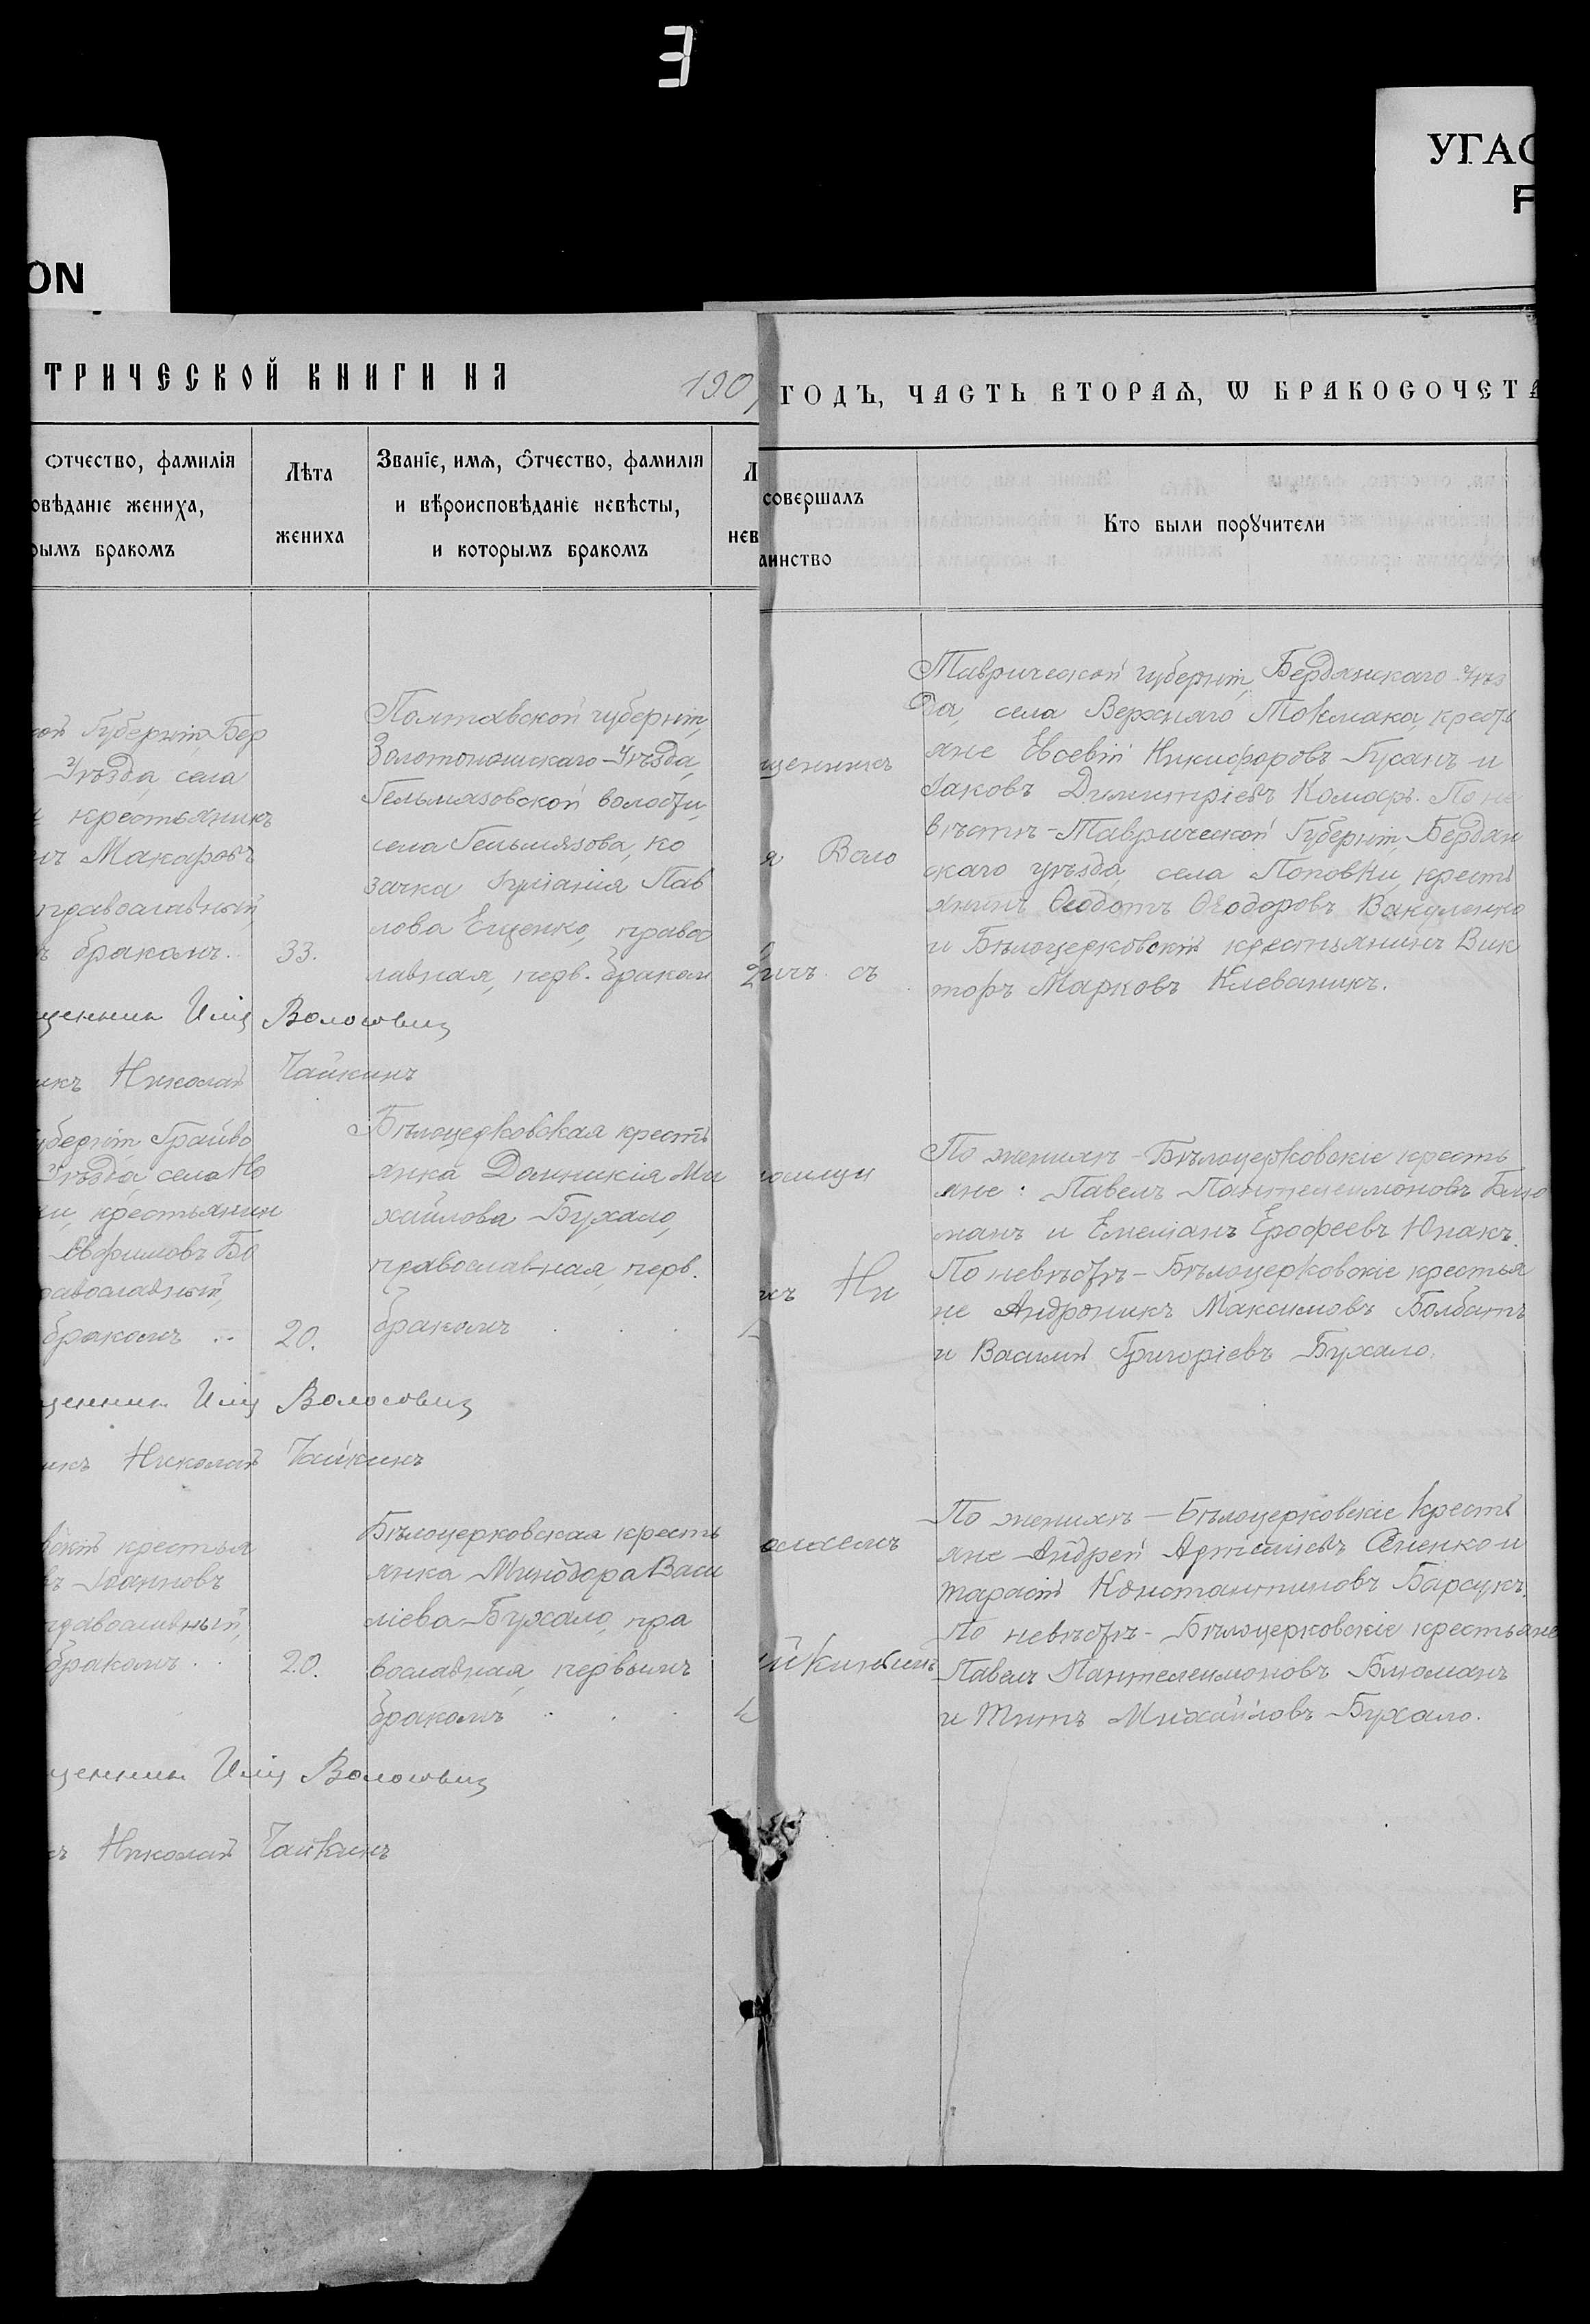 E
УГАС
F
ON
ТРИЧЕСКОЙ КНИГИ НА 190
ГОДЪ, ЧАСТЬ ВТОРАѦ, Ѡ БРАКОСОЧЕТА
отчество, фамилія
овѣданіе жениха,
рымъ бракомъ
Лѣта
жениха
Званіе, имѧ, ѻтчество, фамилія
и вѣроисповѣданіе невѣсты,
и которымъ бракомъ
Л
нев
совершалъ
аинство
Кто были порꙋчители
ой Губерніи, Бер
Уѣзда, села
крестьянинъ
нъ Макаровъ
православный,
ъ бракомъ.
33.
Полтавской губерніи,
Золотоношскаго Уѣзда,
Гельмязовской волости,
села Гельмязова, ко
зачка Іуліанія Пав
лова Ещенко, правос
лавная, перв. браком
2
щенникъ
я Воло
ичъ съ
Таврической губерніи, Бердянскаго уѣз
да, села Верхняго Токмака, кресть
яне Евсевій Никифоровъ Гусакъ и
Іаковъ Димитріевъ Комаръ. По не
вѣстѣ - Таврической Губерніи, Бердян
скаго уѣзда, села Поповки, кресть
янинъ Ѳеодотъ Ѳеодоровъ Вакуленко
и Бѣлоцерковскій крестьянинъ Вик
торъ Марковъ Клеваникъ.
щенник Илія Волосовичъ
икъ Николай Чайкинъ
уберніи Грайво
Уѣзда села Но
и, крестьянин
Евфимовъ Бо
равославный,
бракомъ ..
20.
Бѣлоцерковская кресть
янка Домникія Ми
хайлова Бухало,
православная, перв.
бракомъ . . .
1
къ Ни
По женихѣ - Бѣлоцерковскіе кресть
яне: Павелъ Пантелеимоновъ Блю
манъ и Емеліанъ Ерофеевъ Юпакъ.
По невѣстѣ - Бѣлоцерковскіе крестья
не Андроникъ Максимовъ Болбатъ
и Василій Григоріевъ Бухало.
щенник Илія Волосовичъ
икъ Николай Чайкинъ
вскій крестья
ъ Іоанновъ
православный,
бракомъ . .
20.
Бѣлоцерковская кресть
янка Минодора Васи
ліева Бухало, пра
вославная, первымъ
бракомъ . . .
аломъ
йкинымъ
По женихѣ - Бѣлоцерковскіе кресть
яне Андрей Артеміевъ Сененко и
Тарасій Константиновъ Барсукъ.
По невѣстѣ - Бѣлоцерковскіе крестьяне
Павелъ Пантелеимоновъ Блюманъ
и Титъ Михайловъ Бухало.
щенник Илія Волосовичъ
ъ Николай Чайкинъ